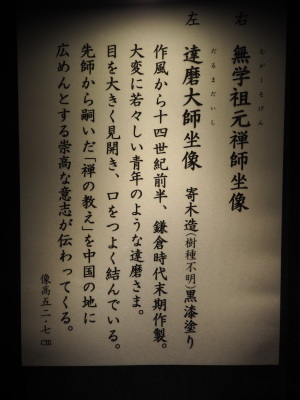 右 無学祖元禅師坐像
むがくそげん
左 達磨大師坐像 寄木造(樹種不明)黒漆塗り
だるまだいし
作風から十四世紀前半、鎌倉時代末期作製。
大変に若々しい青年のような達磨さま。
目を大きく見開き、口をつよく結んでいる。
先師から嗣いだ「禅の教え」を中国の地に
広めんとする崇高な意志が伝わってくる。
像高五二・七㎝